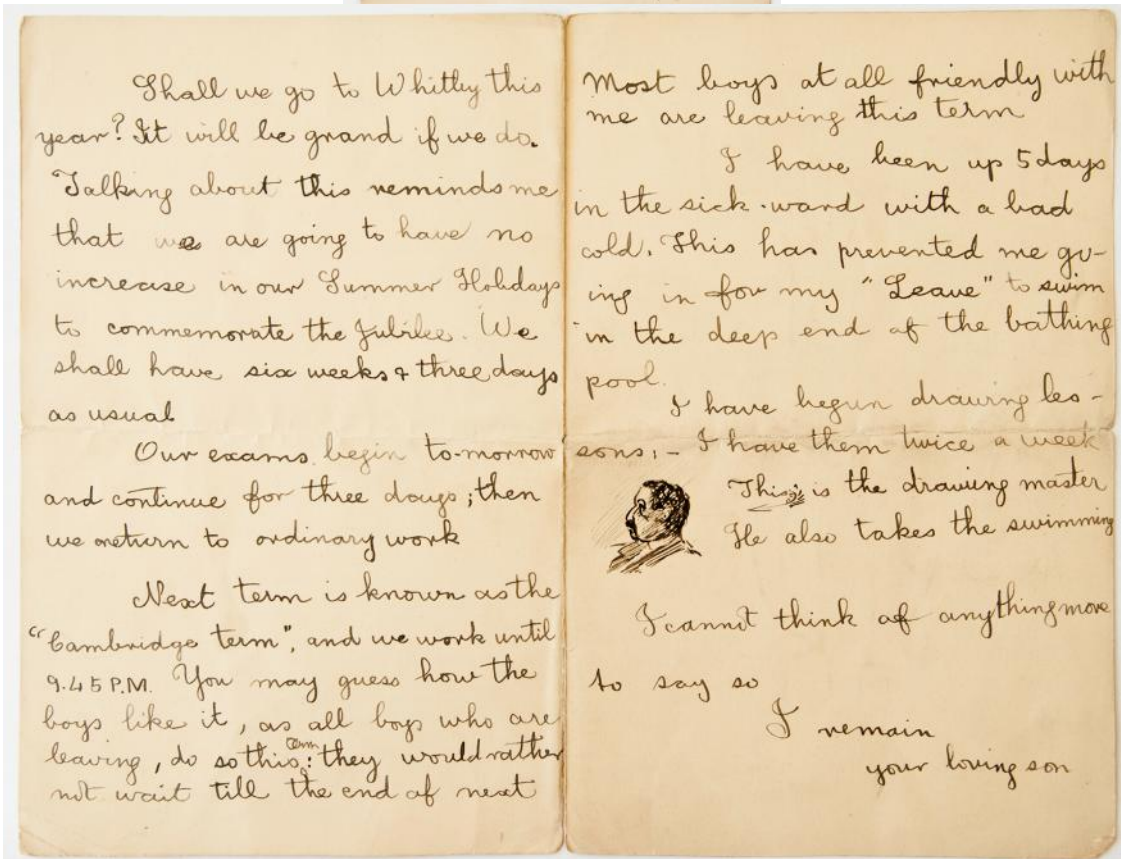 Shall we go to Whitby this
year? It will be grand if we do.
Talking about this reminds me
that we are going to have no
increase in our Summer Holidays
to commemorate the Jubilee. We
shall have six weeks & three days
as usual
Our exams begin to-morrow
and continue for three days; then
we return to ordinary work
Next term is known as the
"Cambridge term", and we work until
9.45 P.M. You may guess how the
boys like it, as all boys who are
leaving, do so this term: they would rather
not wait till the end of next
Most boys at all friendly with
me are leaving this term
I have been up 5 days
in the sick-ward with a bad
cold. This has prevented me go-
ing in for my "Leave" to swim
in the deep end of the bathing
pool.
I have begun drawing les-
sons:- I have them twice a week
This is the drawing master
He also takes the swimming
I cannot think of anything more
to say so
I remain
your loving son